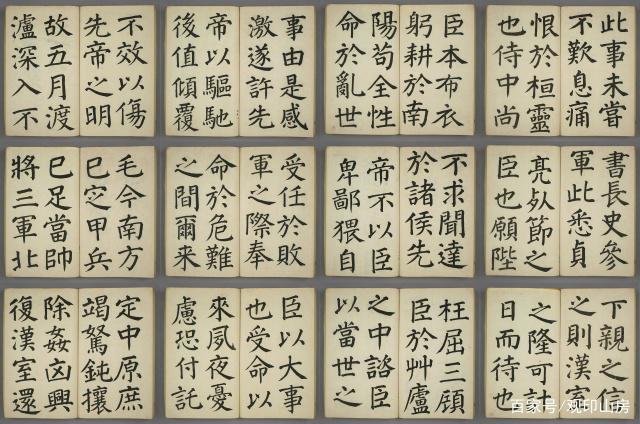 此事未嘗
不歎息痛
恨於桓靈
也侍中尚
書長史參
軍此悉貞
亮死節之
臣也願陛
下親之信
之則漢室
之隆可計
日而待也
臣本布衣
躬耕於南
陽苟全性
命於亂世
不求聞達
於諸侯先
帝不以臣
卑鄙猥自
枉屈三顧
臣於艸廬
之中諮臣
以當世之
事由是感
激遂許先
帝以驅馳
後值傾覆
受任於敗
軍之際奉
命於危難
之間爾来
臣以大事
也受命以
來夙夜憂
慮恐付託
不效以傷
先帝之明
故五月渡
瀘深入不
毛今南方
已定甲兵
已足當帥
將三軍北
定中原庶
竭駑鈍攘
除姦凶興
復漢室還
百家号/观印山房